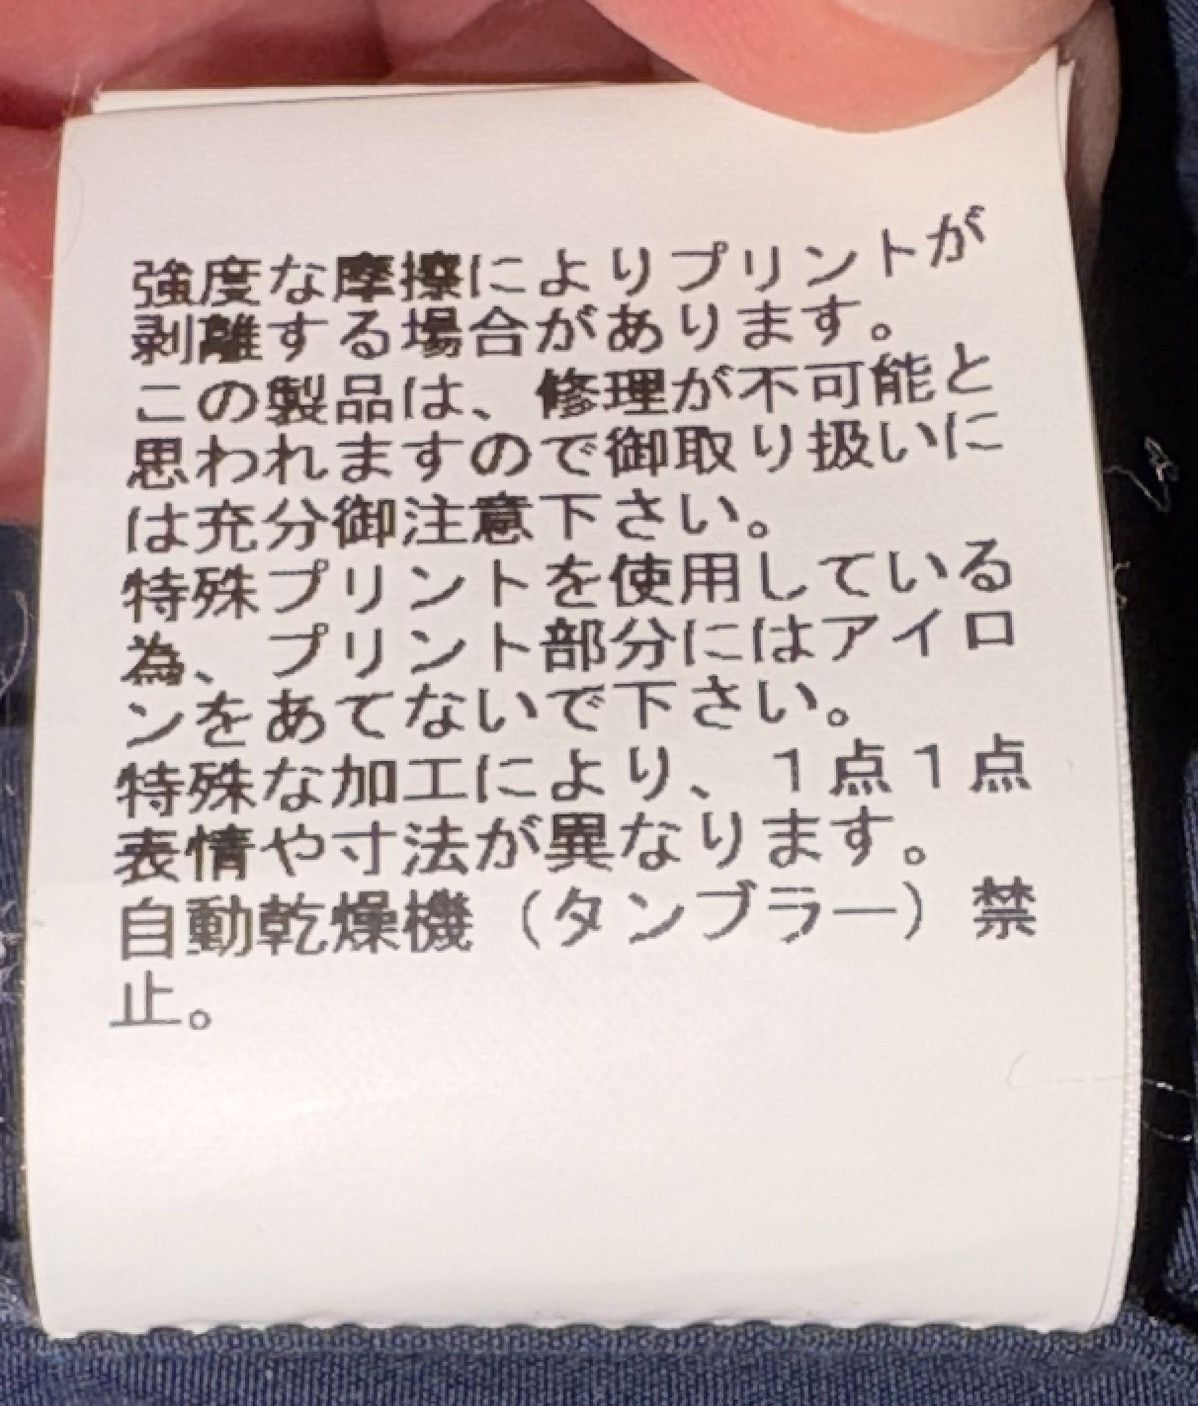 強度な摩擦によりプリントが
剥離する場合があります。
この製品は、修理が不可能と
思われますので御取り扱いに
は充分御注意下さい。
特殊プリントを使用している
為、プリント部分にはアイロ
ンをあてないで下さい。
特殊な加工により、１点１点
表情や寸法が異なります。
自動乾燥機（タンブラー）禁
止。